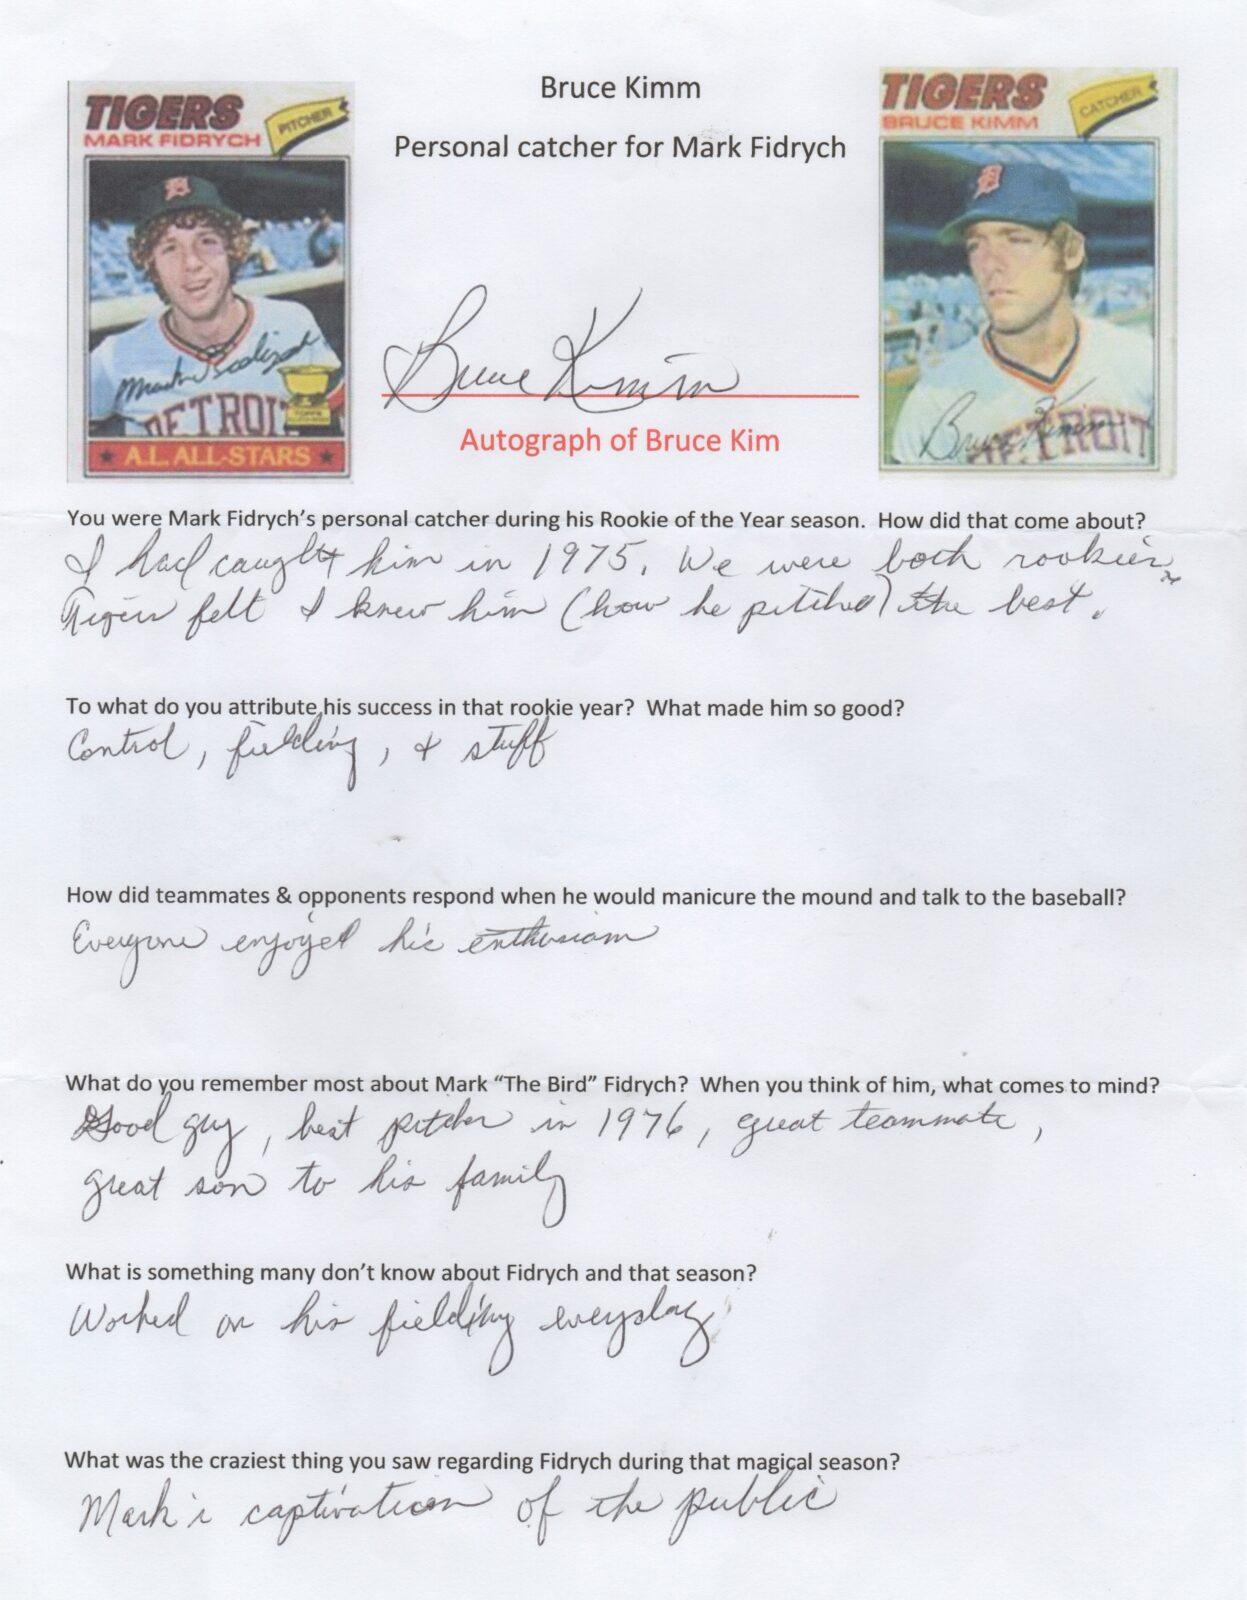 TIGERS
MARK FIDRYCH
PITCHER
Mark Fidrych
DETROIT
TOPPS
★ A.L. ALL-STARS ★
Bruce Kimm
Personal catcher for Mark Fidrych
Bruce Kimm
Autograph of Bruce Kim
TIGERS
BRUCE KIMM
CATCHER
Bruce Kimm
DETROIT
You were Mark Fidrych's personal catcher during his Rookie of the Year season. How did that come about?
I had caught him in 1975. We were both rookies
Tigers felt I knew him (how he pitched) the best.
To what do you attribute his success in that rookie year? What made him so good?
Control, fielding, + stuff
How did teammates & opponents respond when he would manicure the mound and talk to the baseball?
Everyone enjoyed his enthusiasm
What do you remember most about Mark "The Bird" Fidrych? When you think of him, what comes to mind?
Good guy, best pitcher in 1976, great teammate,
great son to his family
What is something many don't know about Fidrych and that season?
Worked on his fielding everyday
What was the craziest thing you saw regarding Fidrych during that magical season?
Mark's captivation of the public